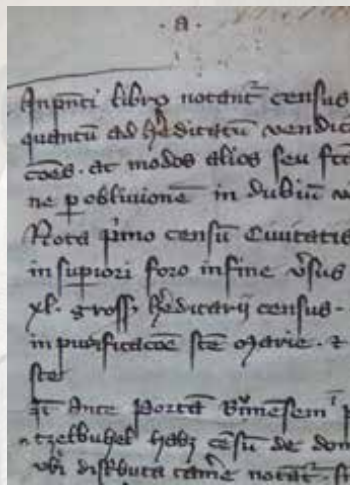 · a ·
In pn̄ti libro notant᷑ census
quantū ad h̓editatū vendic
cōes · ac modos alios seu
ne p oblivionē in dubiū v
Nota p̓mo censū Civitatis
in supiori foro in fine v̓sus
xl · gross · h̓editarij census ·
in purificacōe stē Marie · ⁊
ste
It̄ Ante Portā
habz cēsū de dom
vbi notat᷑ ·